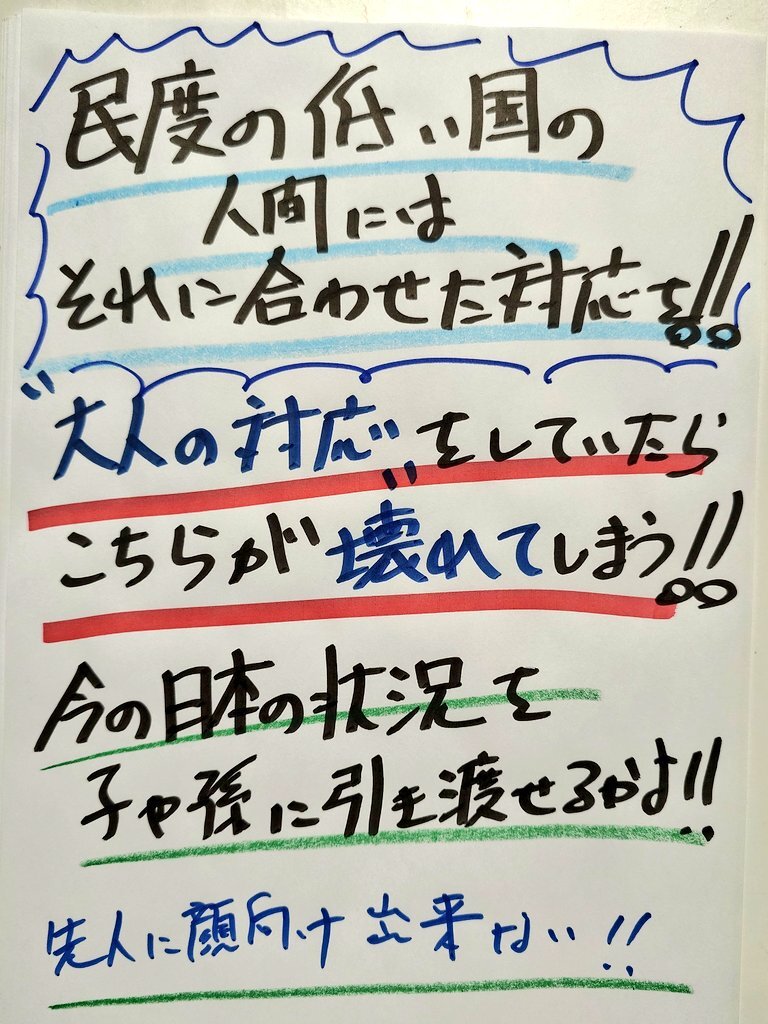 民度の低い国の
人間には
それに合わせた対応を!!
"大人の対応"をしていたら
こちらが壊れてしまう!!
今の日本の状況を
子や孫に引き渡せるかよ!!
先人に顔向け出来ない!!